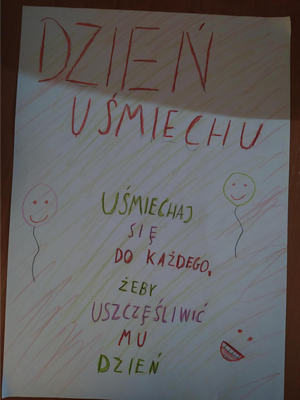 DZIEŃ
UŚMIECHU
UŚMIECHAJ
SIĘ
DO KAŻDEGO,
ŻEBY
USZCZĘŚLIWIĆ
MU
DZIEŃ